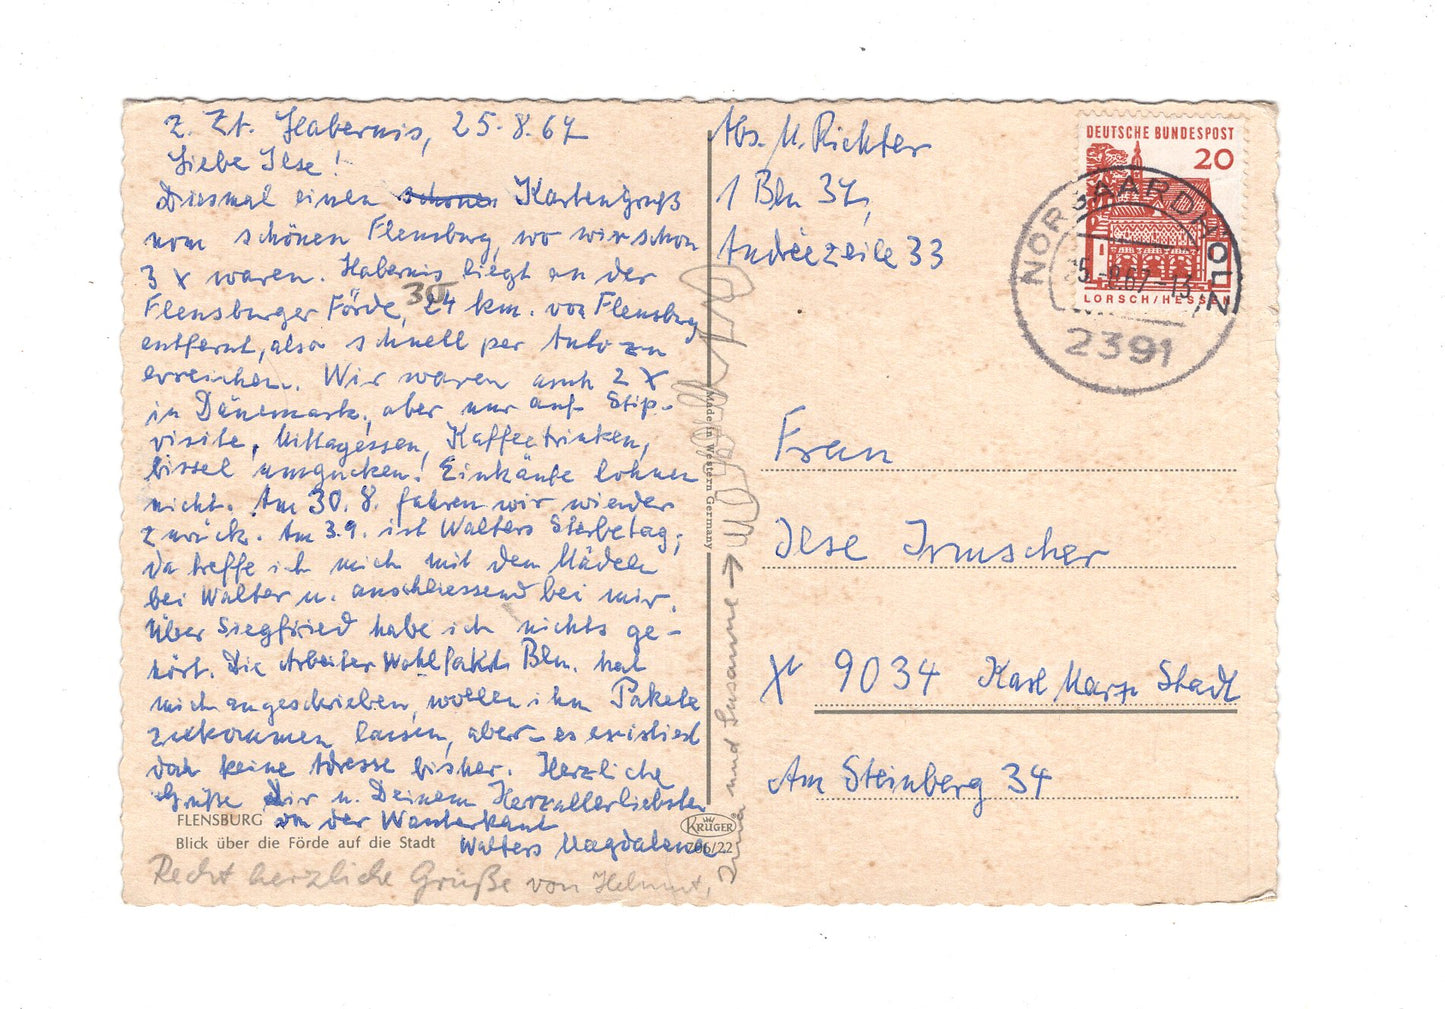 z. Zt. Habernis, 25.8.67
Liebe Ilse!
Diesmal einen schönen Kartengruß
vom schönen Flensburg, wo wir schon
3 x waren. Habernis liegt an der
Flensburger Förde, 24 km. von Flensburg
30
entfernt, also schnell per Auto zu
erreichen. Wir waren auch 2 x
in Dänemark, aber nur auf Stip-
visite, Mittagessen, Kaffeetrinken,
bissel umgucken! Einkäufe lohnen
nicht. Am 30. 8. fahren wir wieder
zurück. Am 3.9. ist Walters Sterbetag,
da treffe ich mich mit den Mädeln
bei Walter u. anschliessend bei mir.
Über Siegfried habe ich nichts ge-
hört. Die Arbeiter Wohlfahrt Bln. hat
mich angeschrieben, wollen ihm Pakete
zukommen lassen, aber es existiert
doch keine Adresse bisher. Herzliche
Grüße Dir u. Deinem Herzallerliebsten
von der Wasserkant
Walters Magdalena
FLENSBURG
Blick über die Förde auf die Stadt
Recht herzliche Grüße von Helmut,
und Susanne →
Made in Western Germany
KRÜGER
706/22
Abs. M. Richter
1 Bln 37,
Andréezeile 33
DEUTSCHE BUNDESPOST
20
LORSCH/HESSEN
NORGAARDHOLZ
25.-8.67-13
2391
Frau
Ilse Irmscher
9034 Karl Marx Stadt
Am Steinberg 34